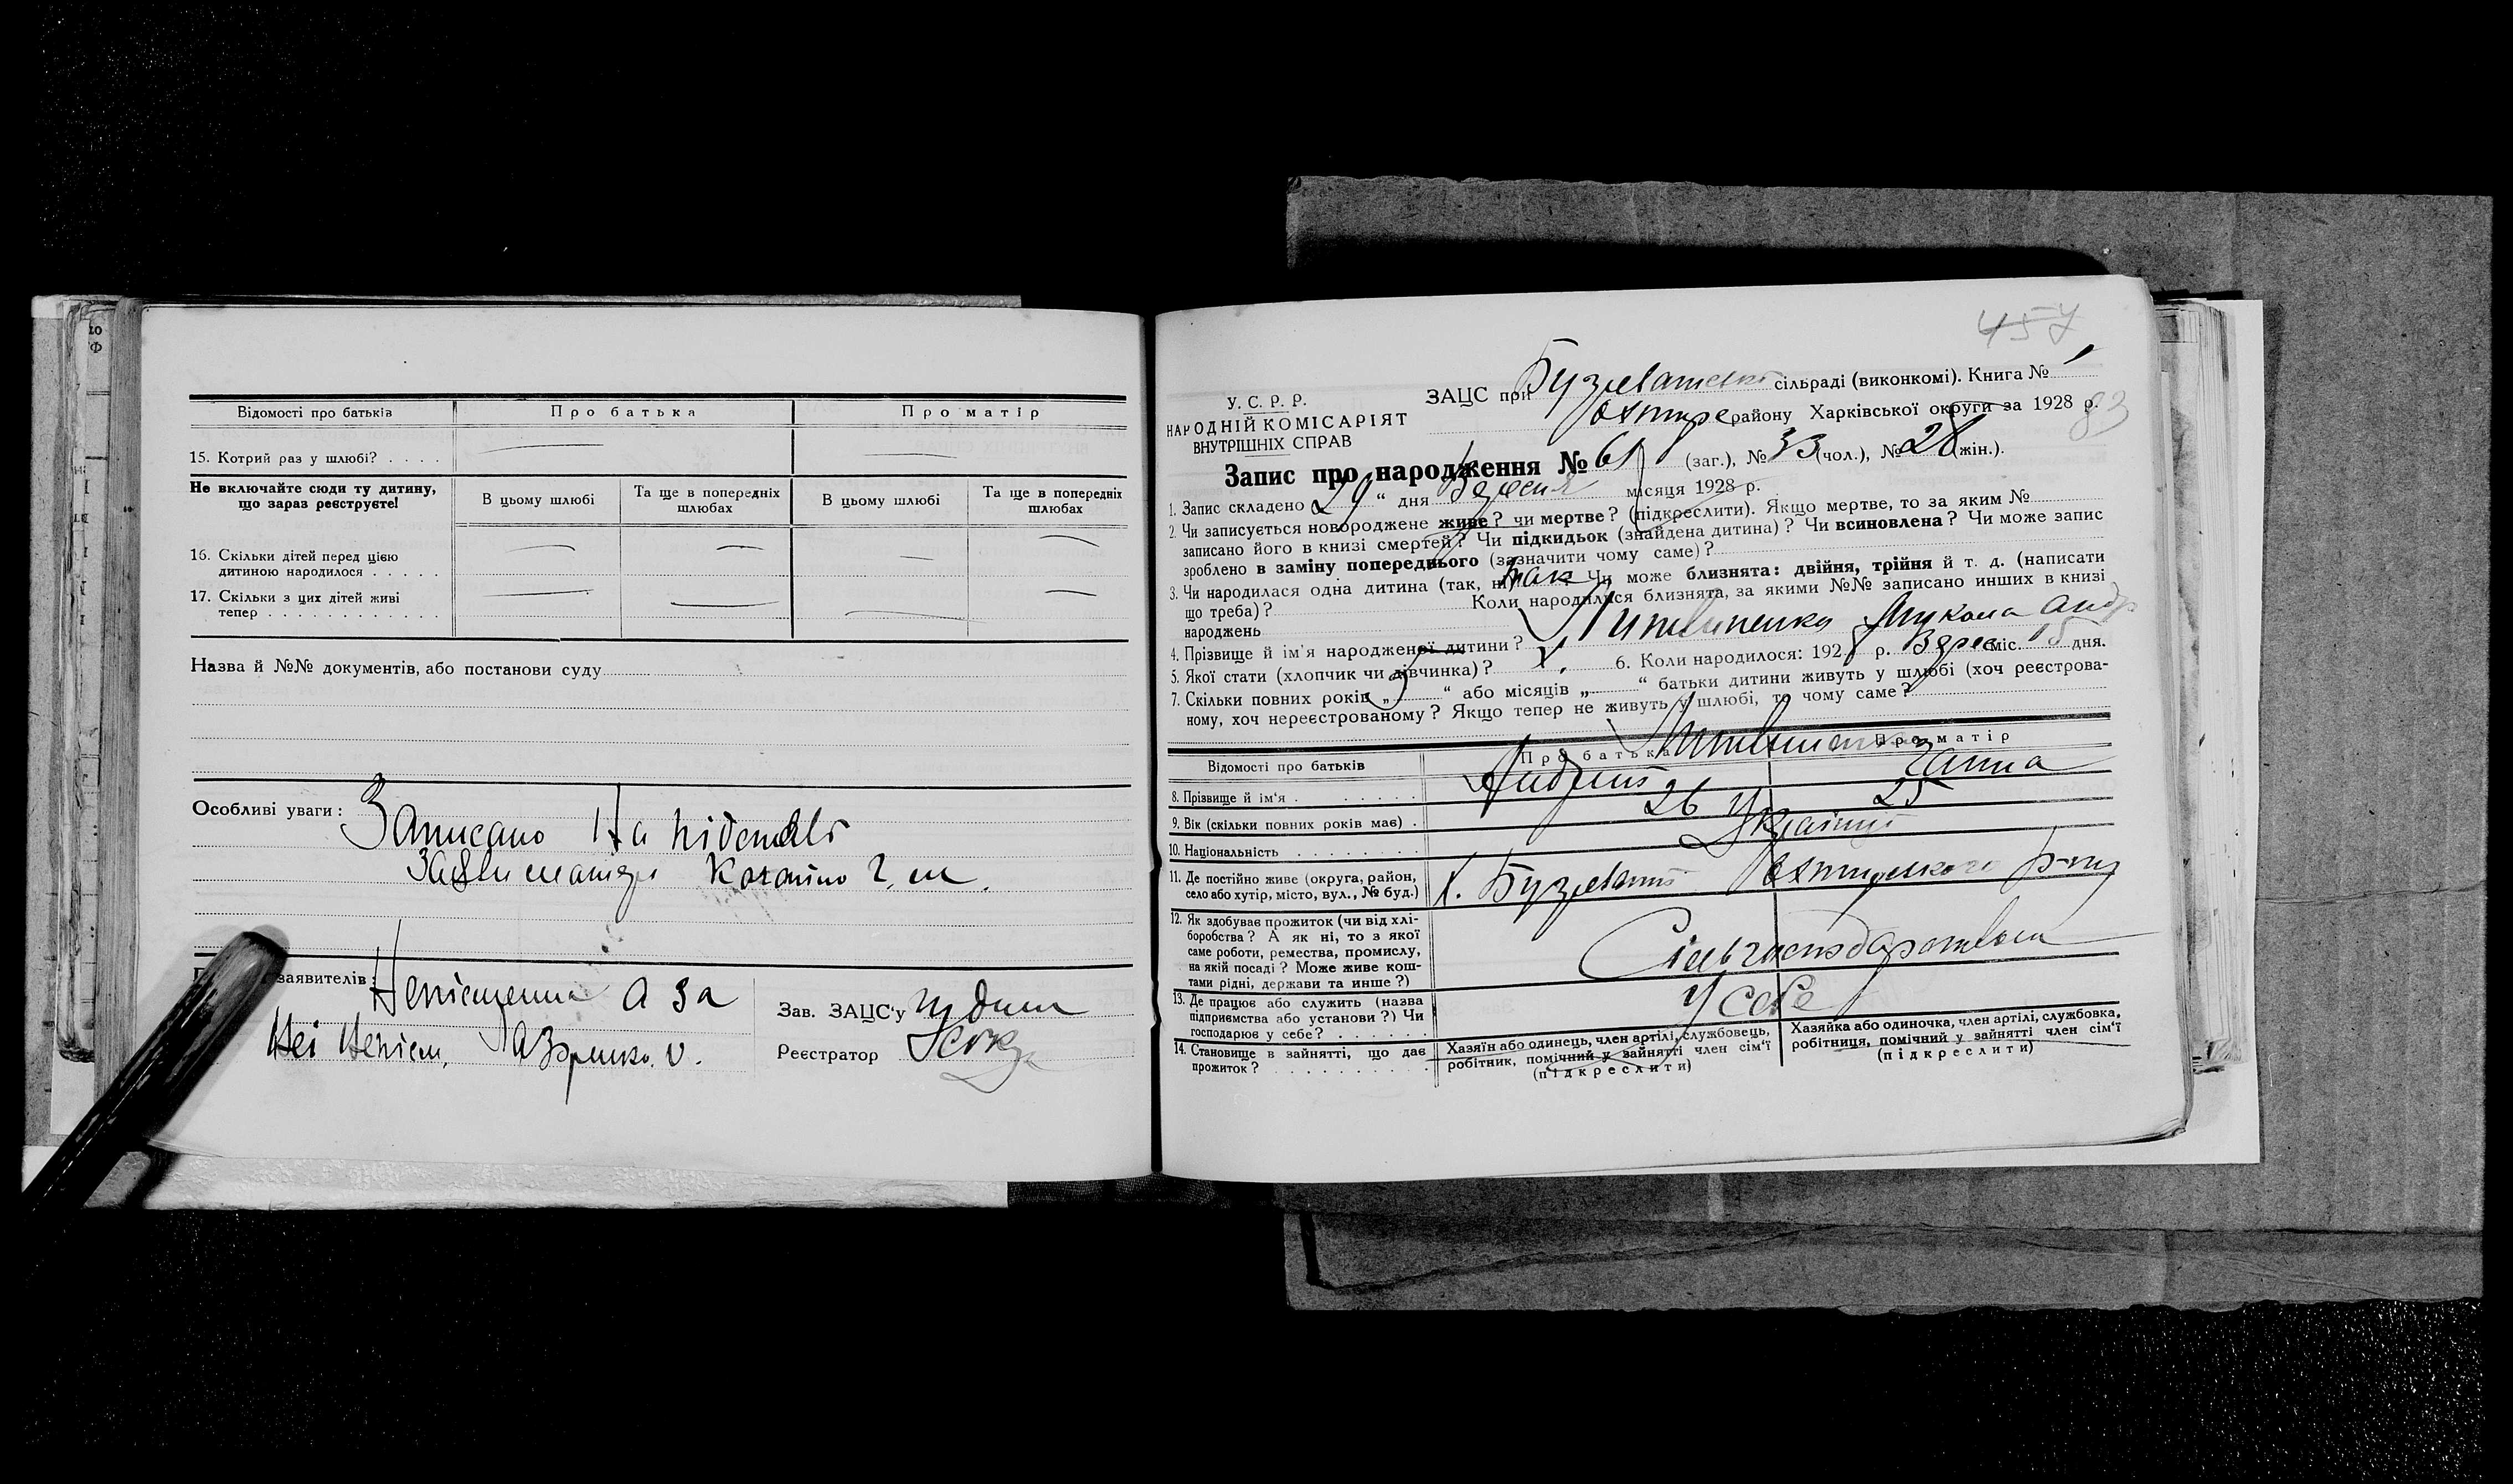 Відомості про батьків
Про батька
Про матір
15. Котрий раз у шлюбі?
Не включайте сюди ту дитину, що зараз реєструєте!
В цьому шлюбі
Та ще в попередніх шлюбах
В цьому шлюбі
Та ще в попередніх шлюбах
16. Скільки дітей перед цією
дитиною народилося
17. Скільки з цих дітей живі
тепер
Назва й №№ документів, або постанови суду
Особливі уваги: Записано На підставі
заявителів:
Зав. ЗАЦС'у
Реєстратор
457
У. С. Р. Р.
НАРОДНІЙ КОМІСАРІЯТ
ВНУТРІШНІХ СПРАВ
ЗАЦС при сільраді (виконкомі). Книга № 1
Охтирс району Харківської округи за 1928 р.
83
Запис про народження № 61 (заг.), № 33 (чол.), № 28 (жін.).
1. Запис складено 29 " дня Вересня місяця 1928 р.
2. Чи записується новороджене живе? чи мертве? (підкреслити). Якщо мертве, то за яким №
записано його в книзі смертей? Чи підкидьок (знайдена дитина)? Чи всиновлена? Чи може запис
зроблено в заміну попереднього (зазначити чому саме)?
3. Чи народилася одна дитина (так, ні) так Чи може близнята: двійня, трійня й т. д. (написати
що треба)? Коли народилися близнята, за якими №№ записано инших в книзі
народжень
4. Прізвище й ім'я народженої дитини? Литвиненко Микола Андр
5. Якої стати (хлопчик чи дівчинка)? Х. 6. Коли народилося: 1928 р. Верес міс. 15 дня.
7. Скільки повних років „ " або місяців „ " батьки дитини живуть у шлюбі (хоч реєстрова-
ному, хоч нереєстрованому? Якщо тепер не живуть у шлюбі, то чому саме?
Відомості про батьків
Про батька
Про матір
8. Прізвище й ім'я Андрій Ганна
9. Вік (скільки повних років має) 26 25
10. Національність Українці
11. Де постійно живе (округа, район,
село або хутір, місто, вул., № буд.)
х. Охтирського р-ну
12. Як здобуває прожиток (чи від хлі-
боробства? А як ні, то з якої
саме роботи, ремества, промислу,
на якій посаді? Може живе кош-
тами рідні, держави та инше?)
13. Де працює або служить (назва
підприємства або установи?) Чи
господарює у себе?
У себе
14. Становище в зайнятті, що дає
прожиток?
Хазяїн або одинець, член артілі, службовець,
робітник, помічний у зайнятті член сім'ї
(підкреслити)
Хазяйка або одиночка, член артілі, службовка,
робітниця, помічний у зайнятті член сім'ї
(підкреслити)